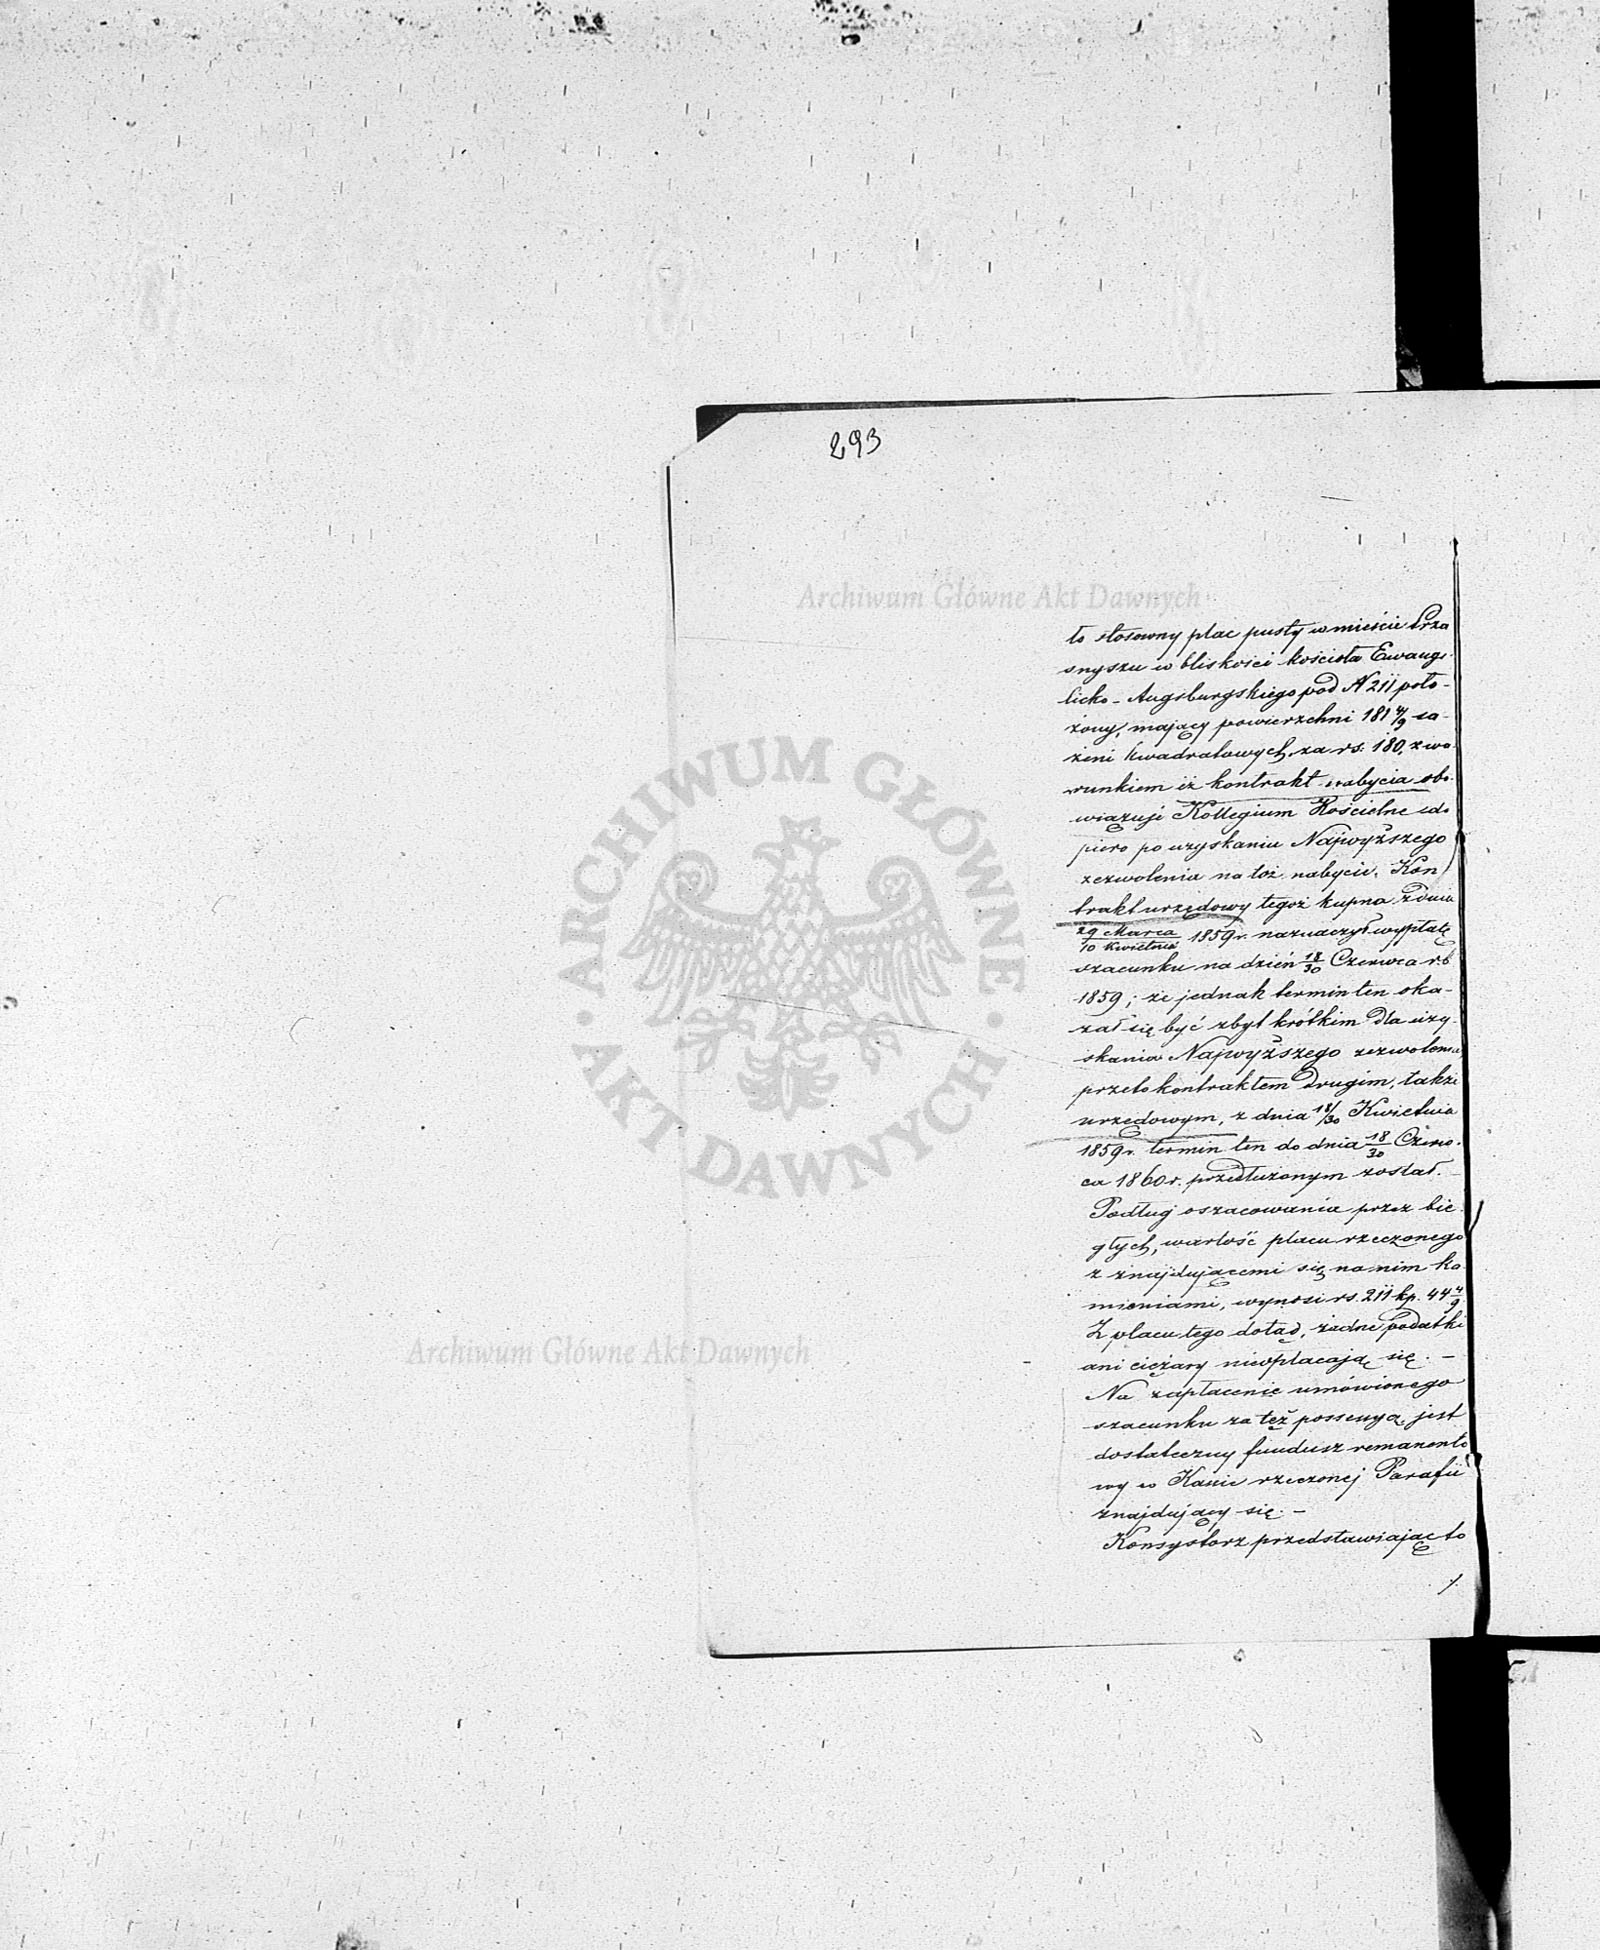 293
Archiwum Główne Akt Dawnych
to stosowny plac pusty w mieście Prza
snyszu w bliskości kościoła Ewange-
licko-Augsburgskiego pod N 211 poło-
żony, mający powierzchni 181 4/9 są-
żeni kwadratowych, za rs. 180, z wa-
runkiem iż kontrakt nabycia obo-
wiązuje Kollegium Kościelne do
piero po uzyskaniu Najwyższego
zezwolenia na toż nabycie. Kon
trakt urzędowy tegoż kupna z dnia
29 Marca/10 Kwietnia 1859 r. naznaczył wypłatę
szacunku na dzień 18/30 Czerwca r.b
1859; że jednak termin ten oka-
zał się być zbyt krótkim dla uzy-
skania Najwyższego zezwolenia,
przeto kontraktem drugim, także
urzędowym, z dnia 18/30 Kwietnia
1859 r. termin ten do dnia 18/30 Czerw-
ca 1860 r. przedłużonym został. -
Podług oszacowania przez bie-
głych, wartość placu rzeczonego
z znajdującemi się na nim ka
mieniami, wynosi rs. 211 kp. 44 4/9
Z placu tego dotąd, żadne podatki
ani ciężary nieopłacają się. -
Na zapłacenie umówionego
szacunku za tęż possesyą, jest
dostateczny fundusz remanento
wy w Kasie rzeczonej Parafii
znajdujący się. -
Konsystorz przedstawiając to
./.
ARCHIWUM GŁÓWNE
AKT DAWNYCH
Archiwum Główne Akt Dawnych